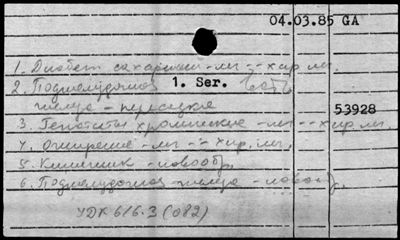 04.03.85 GA
1. Диабет сахарный - леч. - хир. леч.
2. Поджелудочная
1. Ser.
железа - пересадка
53928
3. Гепатиты хронические - леч. - хир. леч.
4. Ожирение - леч. - хир. леч.
5. Кишечник - новообр.
6. Поджелудочная железа - новообр.
УДК 616.3 (082)